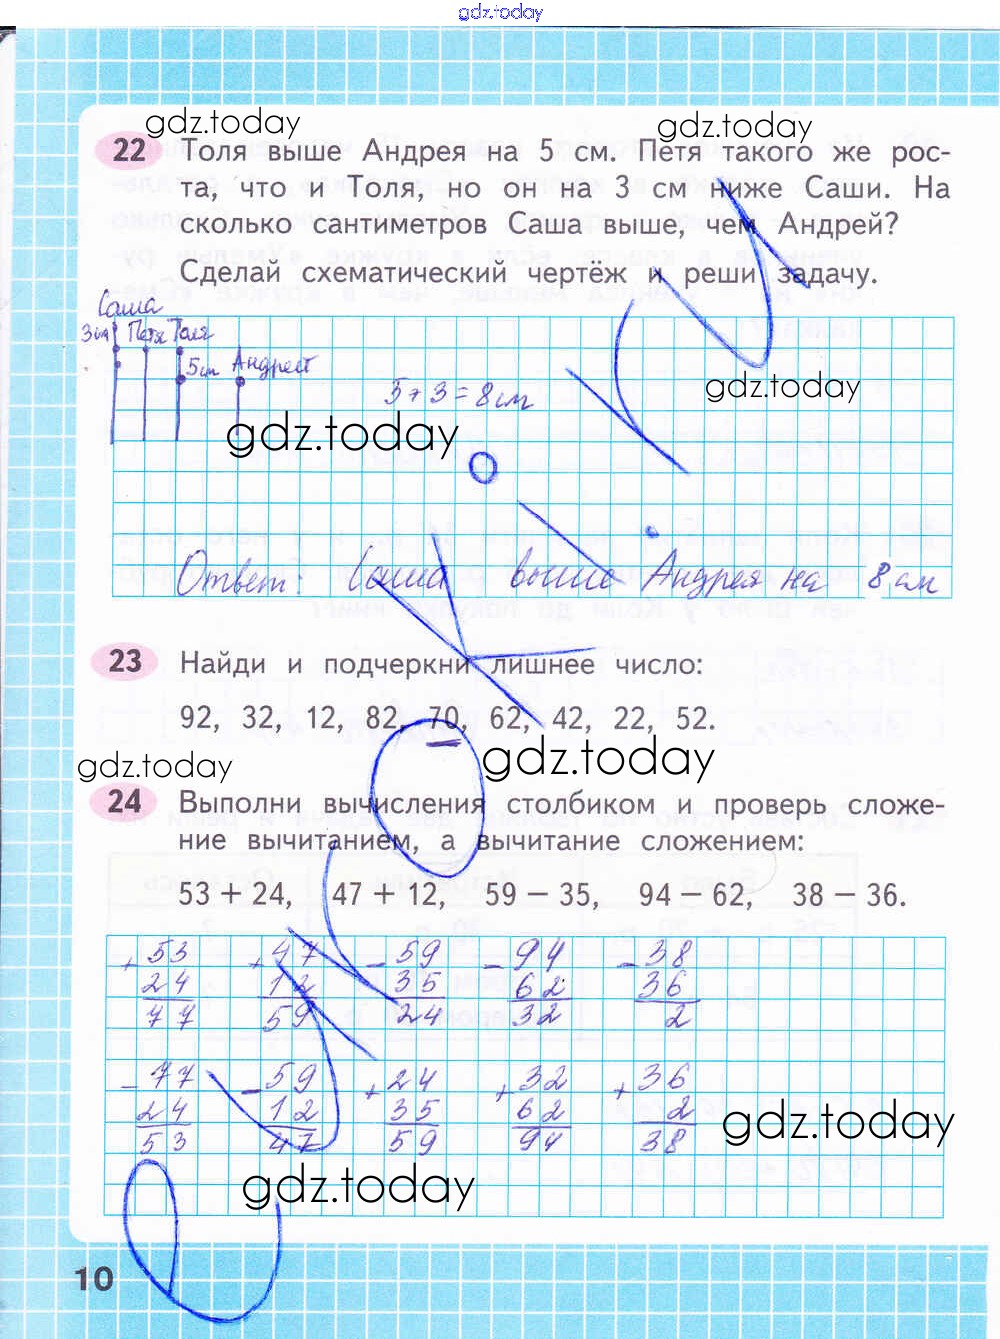 gdz.today
gdz.today
gdz.today
22 Толя выше Андрея на 5 см. Петя такого же рос-
та, что и Толя, но он на 3 см ниже Саши. На
сколько сантиметров Саша выше, чем Андрей?
Сделай схематический чертёж и реши задачу.
Саша
3см Петя Толя
5см Андрей
gdz.today
5+3=8см
gdz.today
Ответ: Саша выше Андрея на 8 см
23 Найди и подчеркни лишнее число:
92, 32, 12, 82, 70, 62, 42, 22, 52.
gdz.today
gdz.today
24 Выполни вычисления столбиком и проверь сложе-
ние вычитанием, а вычитание сложением:
53 + 24, 47 + 12, 59 − 35, 94 − 62, 38 − 36.
+ 53 + 47 − 59 − 94 − 38
24 12 35 62 36
77 59 24 32 2
− 77 − 59 + 24 + 32 + 36
24 12 35 62 2
53 47 59 94 38
gdz.today
gdz.today
10